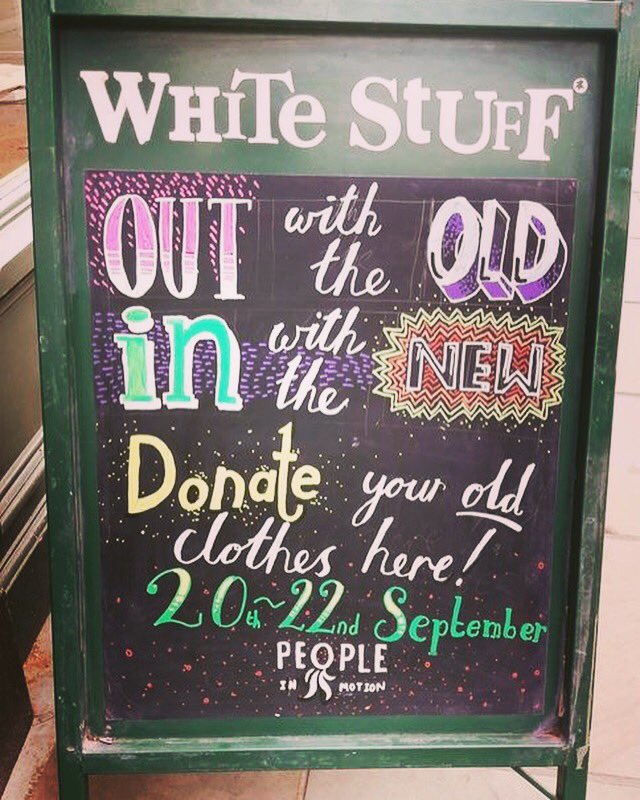 WHiTe StUFF
OUT with the OLD
in with the NEW
Donate your old
clothes here!
20th~22nd September
PEOPLE
IN MOTION